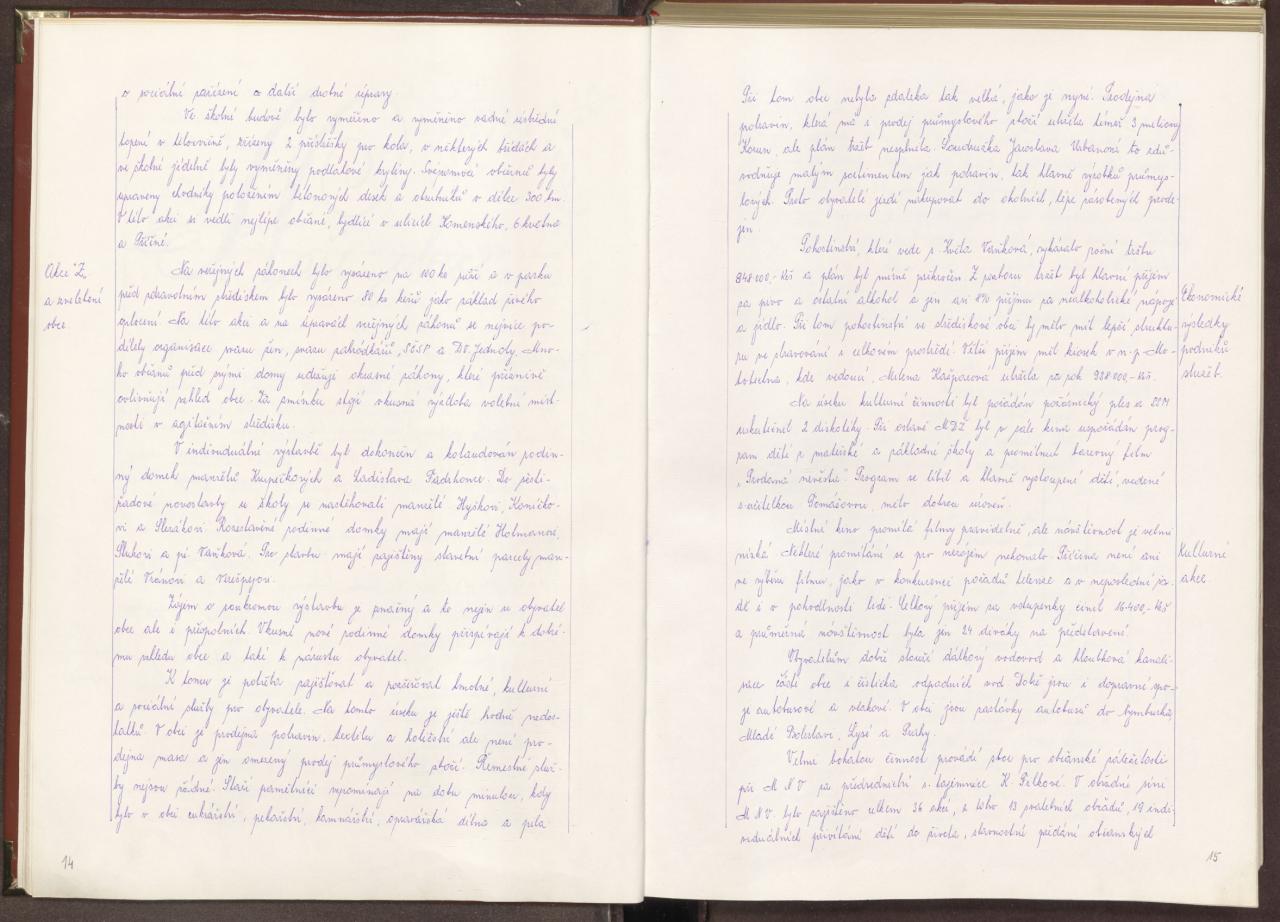 a sociální zařízení a další drobné úpravy.
Ve školní budově bylo vyměřeno a vyměněno vadné ústřední
topení v tělocvičně, zřízeny 2 přístěšky pro kola, v některých třídách a
ve školní jídelně byly vyměněny podlahové krytiny. Svépomocí občanů byly
upraveny chodníky položením betonových desek a obrubníků v délce 300 bm.
V této akci si vedli nejlépe občané, bydlící v ulicích Komenského, 6. května
a Příčné.
Akce "Z"
a zvelebení
obce.
Na veřejných záhonech bylo vysazeno na 100 ks růží a v parku
před zdravotním střediskem bylo vysázeno 80 ks keřů jako základ živého
oplocení. Na této akci a na úpravách veřejných záhonů se nejvíce po-
dílely organizace svazu žen, svazu zahrádkářů, SČSP a DV Jednoty. Mno-
ho občanů před svými domy udržuje okrasné záhony, které příznivě
ovlivňují vzhled obce. Za zmínku stojí vkusná výzdoba volební míst-
nosti v agitačním středisku.
V individuální výstavbě byl dokončen a kolaudován rodin-
ný domek manželů Krupičkových a Ladislava Fadrhonce. Do šesti-
řadové novostavby u školy se nastěhovali manželé Hyškovi, Koníčko-
vi a Slezákovi. Rozestavěné rodinné domky mají manželé Holmanovi,
Slukovi a pí Vaňková. Pro stavbu mají zajištěny stavební parcely man-
želé Vránovi a
Zájem o soukromou výstavbu je značný a to nejen u obyvatel
obce ale i přespolních. Vkusné nové rodinné domky přispívají k dobré-
mu vzhledu obce a také k nárustu obyvatel.
K tomu je potřeba zajišťovat a rozšiřovat hmotné, kulturní
a sociální služby pro obyvatele. Na tomto úseku je ještě hodně nedos-
tatků. V obci je prodejna potravin, textilu a holičství ale není pro-
dejna masa a jen omezený prodej průmyslového zboží. Řemeslné služ-
by nejsou žádné. Staří pamětníci vzpomínají na dobu minulou, kdy
bylo v obci cukrářství, pekařství, kamnářství, opravářská dílna a jiná
14
Při tom obec nebyla zdaleka tak velká, jako je nyní. Prodejna
potravin, která má i prodej průmyslového zboží utržila téměř 3 miliony
Korun, ale plán tržeb nesplnila. Soudružka Jaroslava Urbanová to zdů-
vodňuje malým sortimentem jak potravin, tak hlavně výrobků průmys-
lových. Proto obyvatelé jezdí nakupovat do okolních, lépe zásobených prode-
jen.
Pohostinství, které vede s. Květa Vaňková, vykázalo roční tržbu
848.000,- Kčs a plán byl mírně překročen. Z rozboru tržeb byl hlavní příjem
za pivo a ostatní alkohol a jen asi 8% příjmu za nealkoholické nápoje
a jídlo. Při tom pohostinství ve střediskové obci by mělo mít lepší struktu-
ru ve stravování i celkovém prostředí. Větší příjem měl kiosek v n.p. Mo-
totechna, kde vedoucí, Milena Kašparová utržila za rok 938.000,- Kčs.
Ekonomické
výsledky
podniků
služeb.
Na úseku kulturní činnosti byl pořádán požárnický ples a SSM
uskutečnil 2 diskotéky. Při oslavě MDŽ byl v sále kina uspořádán prog-
ram dětí z mateřské a základní školy a promítnut barevný film
„Prodaná nevěsta". Program se líbil a hlavně vystoupení dětí, vedené
s. učitelkou Tomášovou, mělo dobrou úroveň.
Místní kino promítá filmy pravidelně, ale návštěvnost je velmi
nízká. Některé promítání se pro nezájem nekonalo. Příčina není ani
ve výběru filmu, jako v konkurenci pořadů televize a v neposlední řa-
dě i v pohodlnosti lidí. Celkový příjem za vstupenky činil 16.400,- Kčs
a průměrná návštěvnost byla jen 24 diváků na představení.
Kulturní
akce.
Obyvatelům dobře slouží dálkový vodovod a hloubková kanali-
zace části obce s čistička odpadních vod. Dobré jsou i dopravní spo-
je autobusové a vlakové. V obci jsou zastávky autobusů do Nymburka,
Mladé Boleslavi, Lysé a Prahy.
Velmi bohatou činnost provádí sbor pro občanské záležitosti
při MNV za předsednictví s. tajemnice K. Pilkové. V obřadní síni
MNV bylo zajištěno celkem 36 akcí, z toho 13 svatebních obřadů, 19 indi-
viduálních přivítání dětí do života, slavnostní předání občanských
15